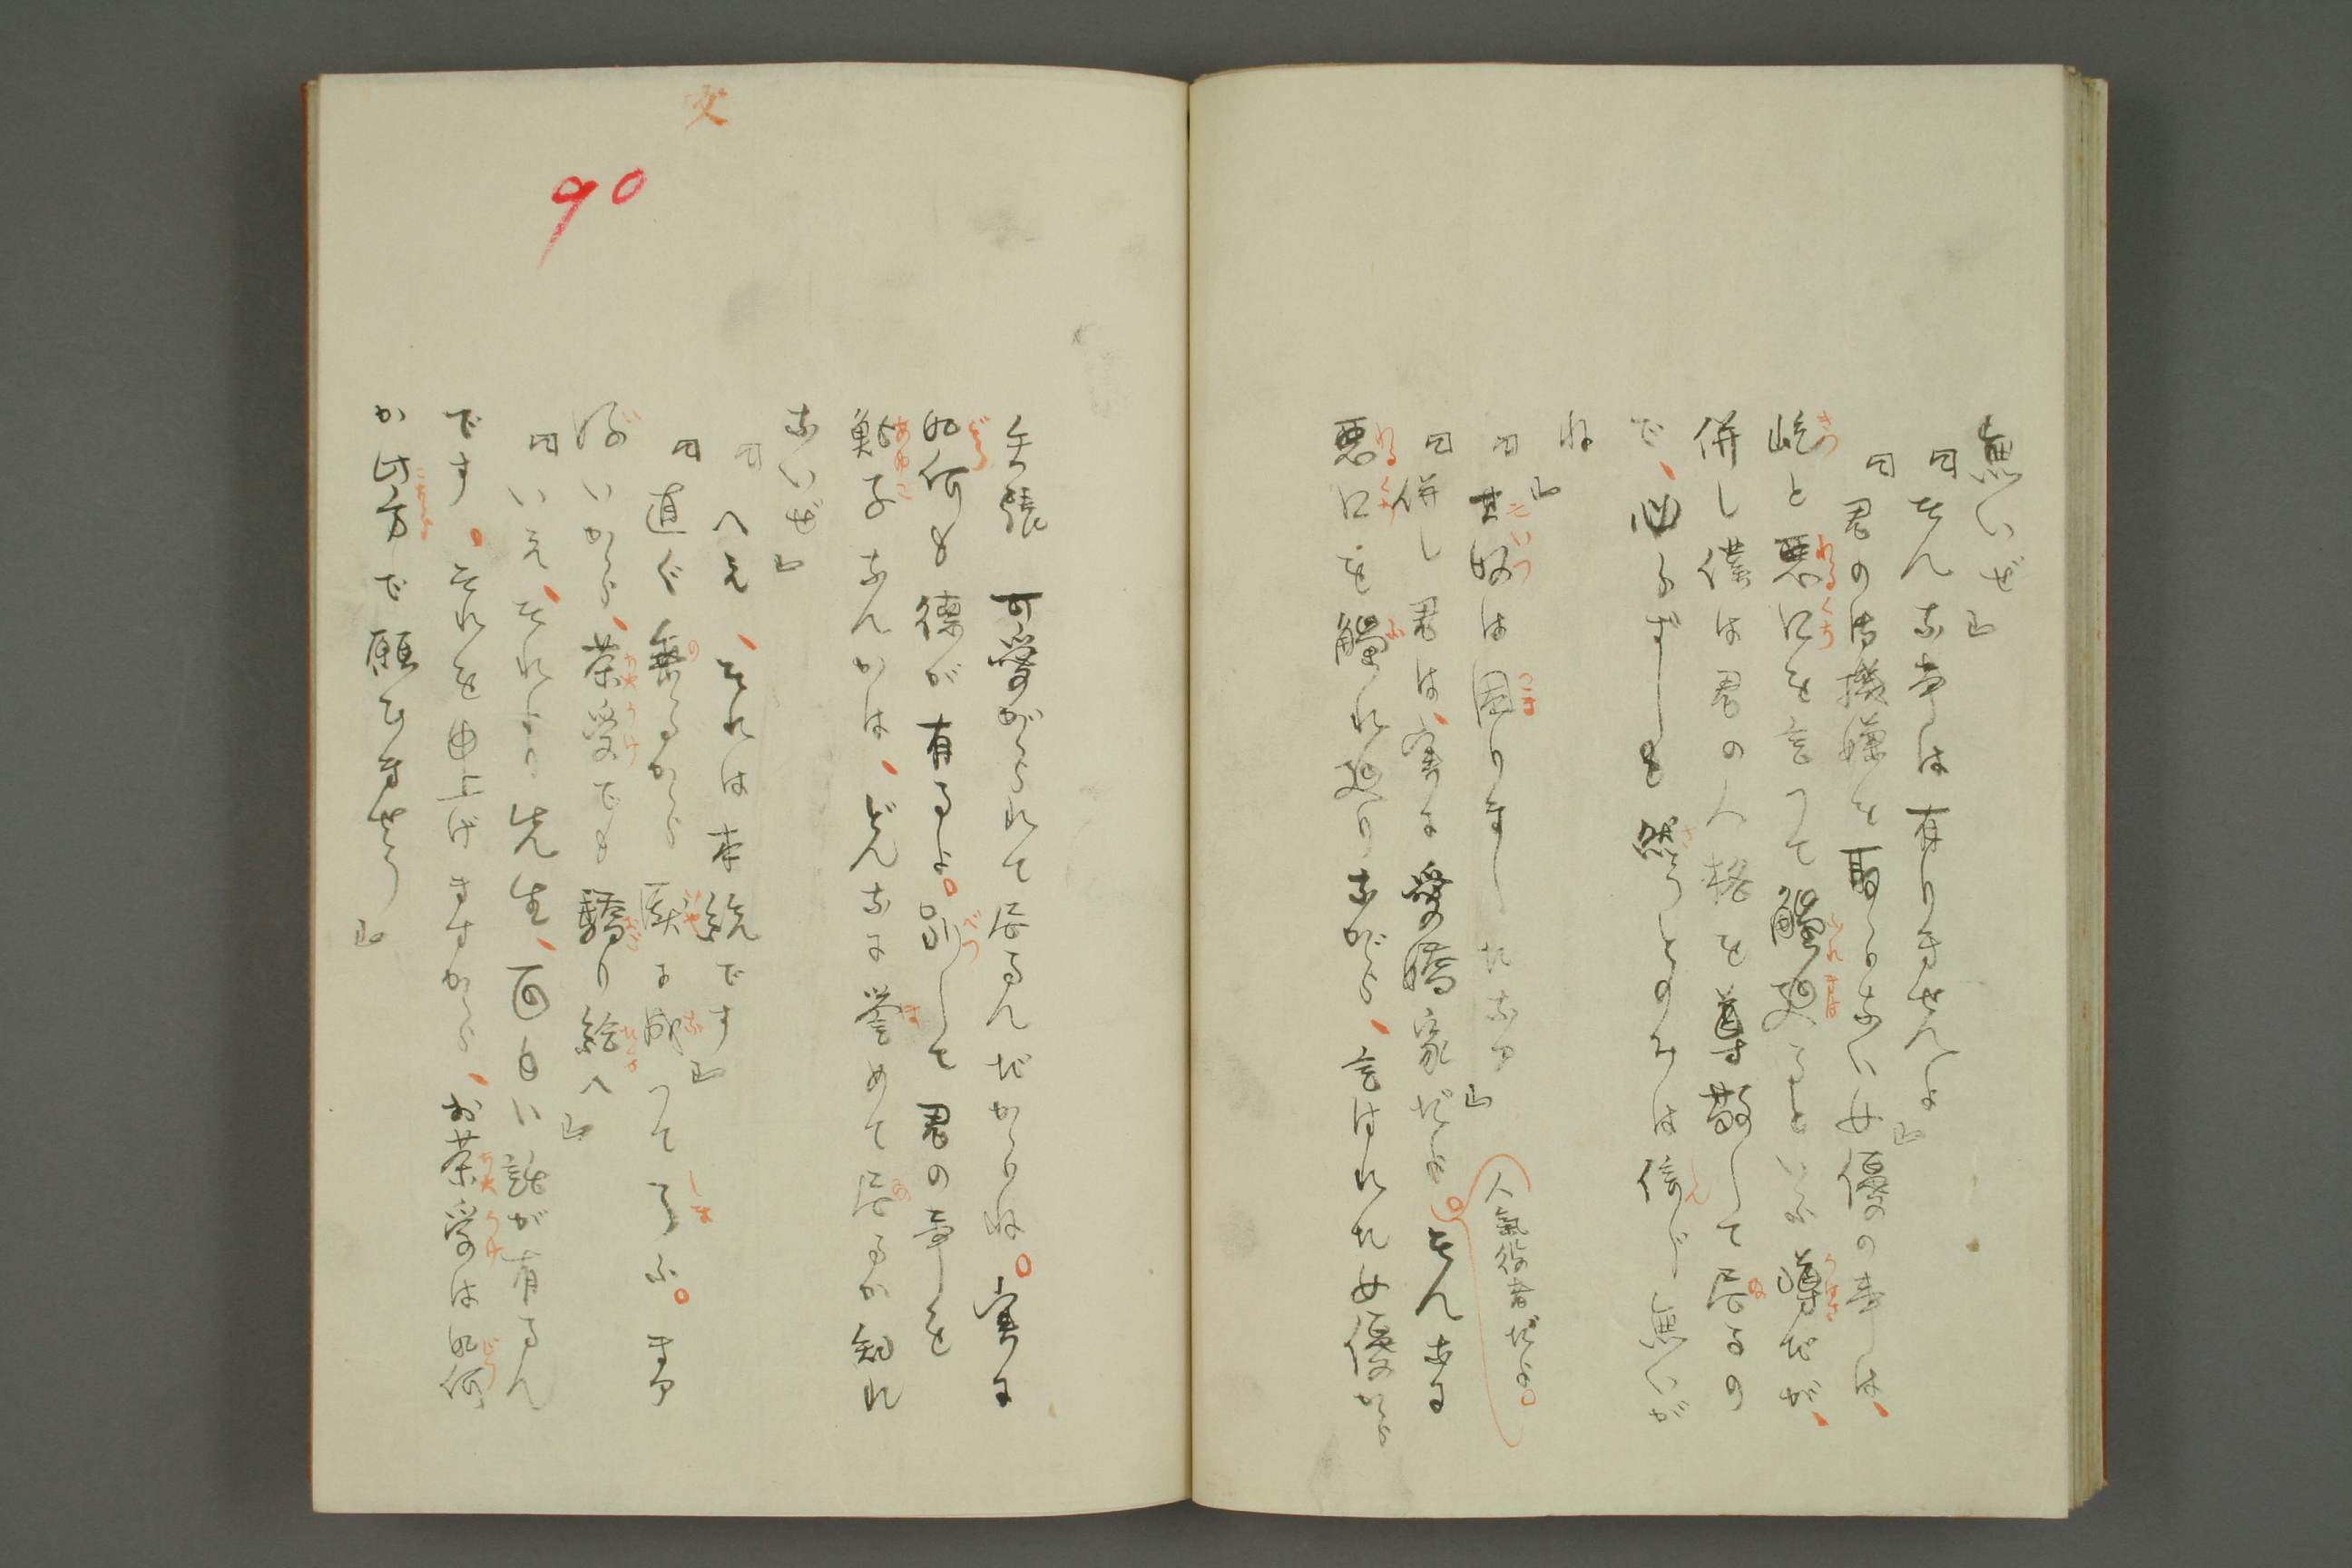 無いぜ」
「そんな事は有りませんよ」
「君の御機嫌を取らない女優の事は、
屹と悪口を言つて觸廻るといふ噂だが、
併し僕は君の人格を尊敬して居るの
で、必らずしも然うとのみは信じ無いが
ね」
「其奴は困りましたなア」
「併し君は、実に愛嬌家だよ。人氣役者だよ。そんなに
悪口を觸れ廻りながら、言はれた女優から
矢張可愛がられて居るんだからね。実に
如何も徳が有るよ。別して君の事を
鮎子なんかは、どんなに誉めて居るか知れ
ないぜ」
「へえ、それは本統ですか」
「直ぐ乗るから厭に成つて了ふ。まア
好いから、茶受でも驕り給へ」
「いえ、それより先生、面白い話が有るん
です。それを申上げますから、お茶受は如何
か此方で願ひませう」
文
90